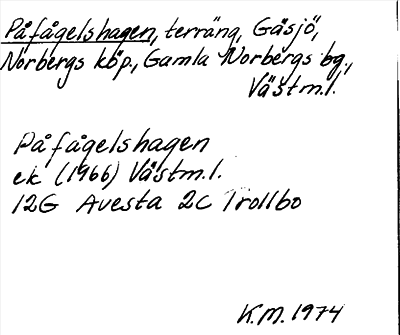 Påfågelshagen, terräng, Gåsjö,
Norbergs köp., Gamla Norbergs bg.,
Västm.l.
Påfågelshagen
ek (1966) Västm.l.
12G Avesta 2c Trollbo
K.M. 1974